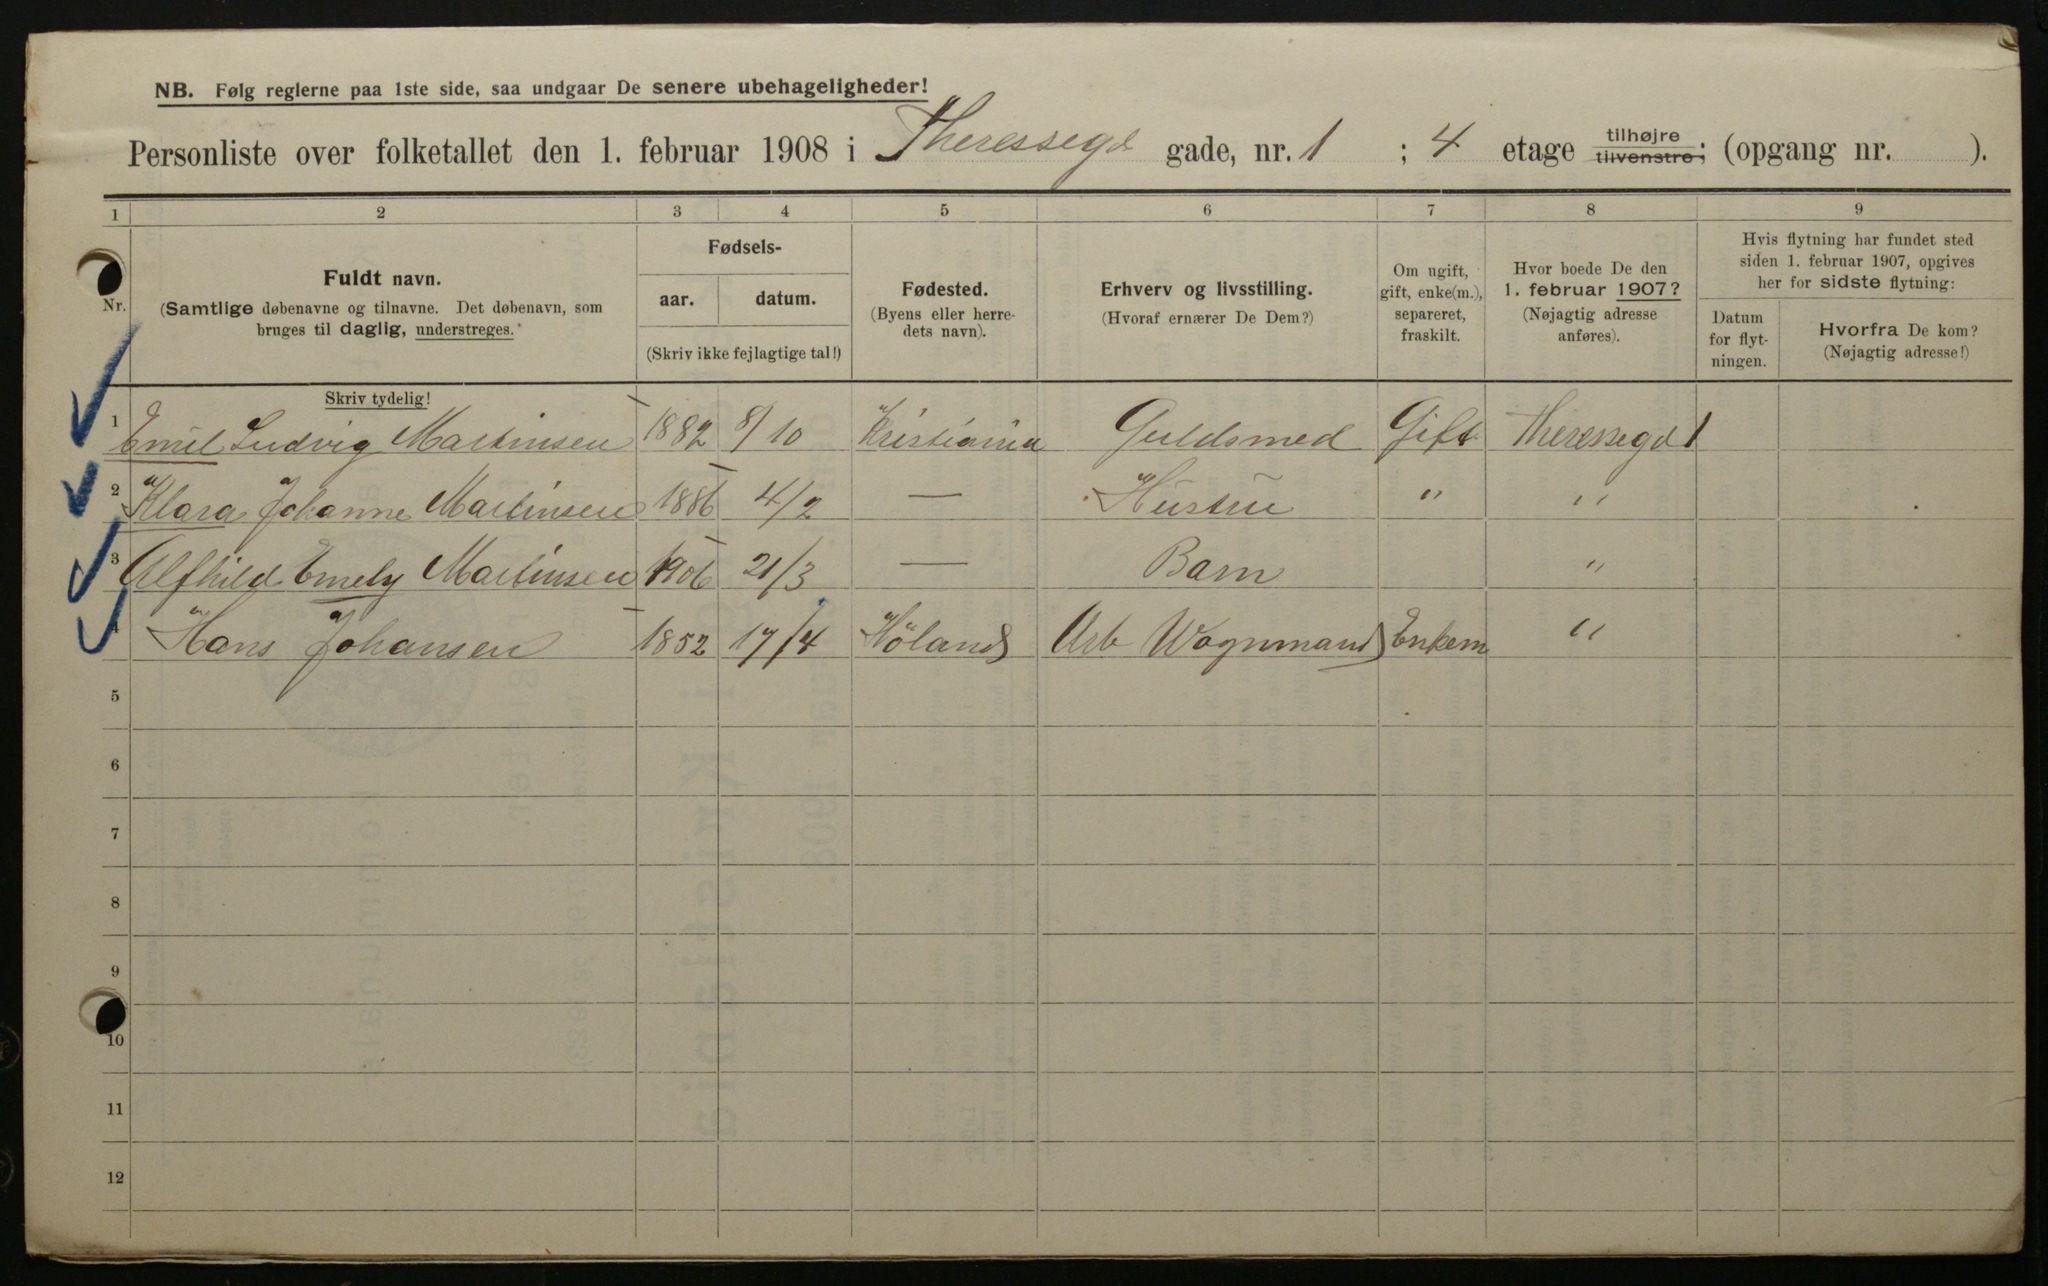 NB. Følg reglerne paa 1ste side, saa undgaar De senere ubehageligheder!
Personliste over folketallet den 1. februar 1908 i Theressegd gade, nr. 1 ; 4 etage tilhøjre tilvenstre; (opgang nr. ).
1 2 3 4 5 6 7 8 9
Nr.
Fuldt navn.
(Samtlige døbenavne og tilnavne. Det døbenavn, som
bruges til daglig, understreges.
Skriv tydelig!
Fødsels-
aar. datum.
(Skriv ikke fejlagtige tal!)
Fødested.
(Byens eller herre-
dets navn).
Erhverv og livsstilling.
(Hvoraf ernærer De Dem?)
Om ugift,
gift, enke(m.),
separeret,
fraskilt.
Hvor boede De den
1. februar 1907?
(Nøjagtig adresse
anføres).
Hvis flytning har fundet sted
siden 1. februar 1907, opgives
her for sidste flytning:
Datum
for flyt-
ningen.
Hvorfra De kom?
(Nøjagtig adresse!)
1 Emil Ludvig Martinsen 1882 8/10 Kristiania Guldsmed Gift Theressegd 1
2 Klara Johanne Martinsen 1886 4/2 — Hustru " "
3 Alfhild Emely Martinsen 1906 21/3 — Barn "
4 Hans Johansen 1852 17/4 Høland Arb Vognmand Enkem "
5
6
7
8
9
10
11
12